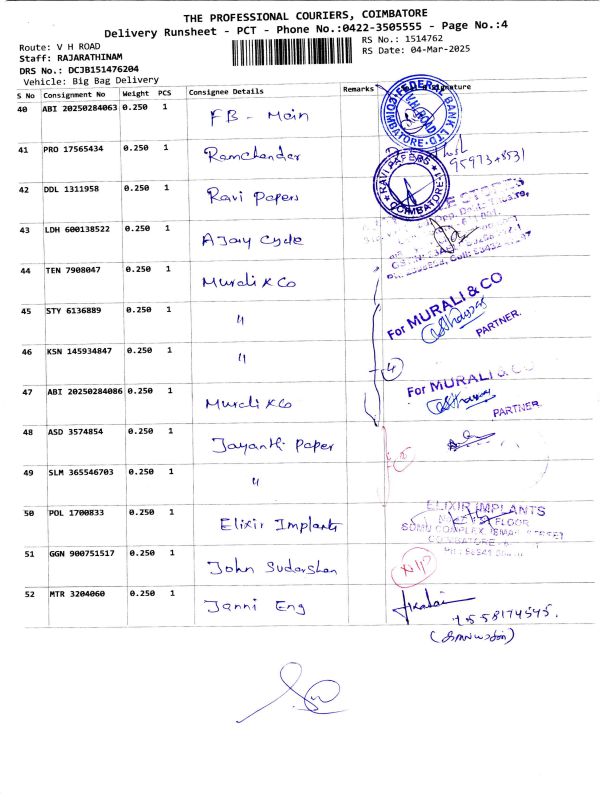 THE PROFESSIONAL COURIERS, COIMBATORE
Delivery Runsheet - PCT - Phone No.:0422-3505555 - Page No.:4
Route: V H ROAD
RS No.: 1514762
Staff: RAJARATHINAM
RS Date: 04-Mar-2025
DRS No.: DCJB151476204
Vehicle: Big Bag Delivery
S No Consignment No Weight PCS Consignee Details Remarks
40 ABI 20250284063 0.250 1 FB - Main
FEDERAL BANK LTD
V.H. ROAD
COIMBATORE
41 PRO 17565434 0.250 1 Ramchander
42 DDL 1311958 0.250 1 Ravi Papers
RAVI PAPERS
COIMBATORE-1
43 LDH 600138522 0.250 1 AJay Cycle
44 TEN 7908047 0.250 1 Murali & Co
45 STY 6136889 0.250 1 "
For MURALI & CO
PARTNER.
46 KSN 145934847 0.250 1 "
4
47 ABI 20250284086 0.250 1 Murali & Co
For MURALI & CO
PARTNER.
48 ASD 3574854 0.250 1 Jayanthi Paper
49 SLM 365546703 0.250 1 "
50 POL 1700833 0.250 1 Elixir Implants
ELIXIR IMPLANTS
FLOOR
COMPLEX
COIMBATORE
51 GGN 900751517 0.250 1 John Sudarshan
52 MTR 3204060 0.250 1 Janni Eng